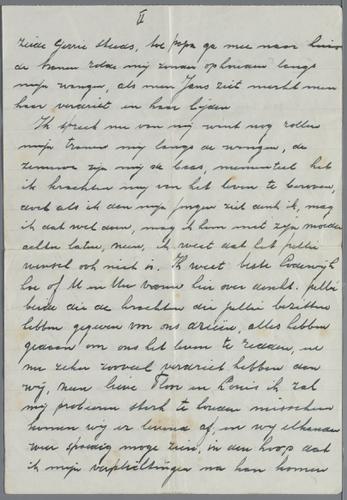 II
zeide Gerrie steeds, toe papa ga mee naar huis
de tranen rolde mij zonder ophouden langs
mijn wangen, als men Jans ziet merkt men
haar verdriet en haar lijden
Ik spreek nu van mij want nog rollen
mijn tranen mij langs de wangen, de
zenuwen zijn mij de baas, momenteel heb
ik krachten mij van het leven te beroven,
doch als ik dan mijn jongen ziet denk ik, mag
ik dat wel doen, mag ik hem met zijn moeder
achter laten, neen, ik weet dat het jullie
wensch ook niet is. Ik weet beste Lodewijk
hoe of U en Uw vrouw hier over denkt. jullie
beide die de krachten die jullie bezitten
hebben gegeven voor ons drieën, alles hebben
gedaan om ons het leven te redden, en
nu zeker zooveel verdriet hebben dan
wij, neen lieve Floor en Louis ik zal
mij probieren sterk te houden misschien
komen wij er levend af, en wij elkander
weer spoedig moge zien, in den hoop dat
ik mijn verplichtingen na kan komen